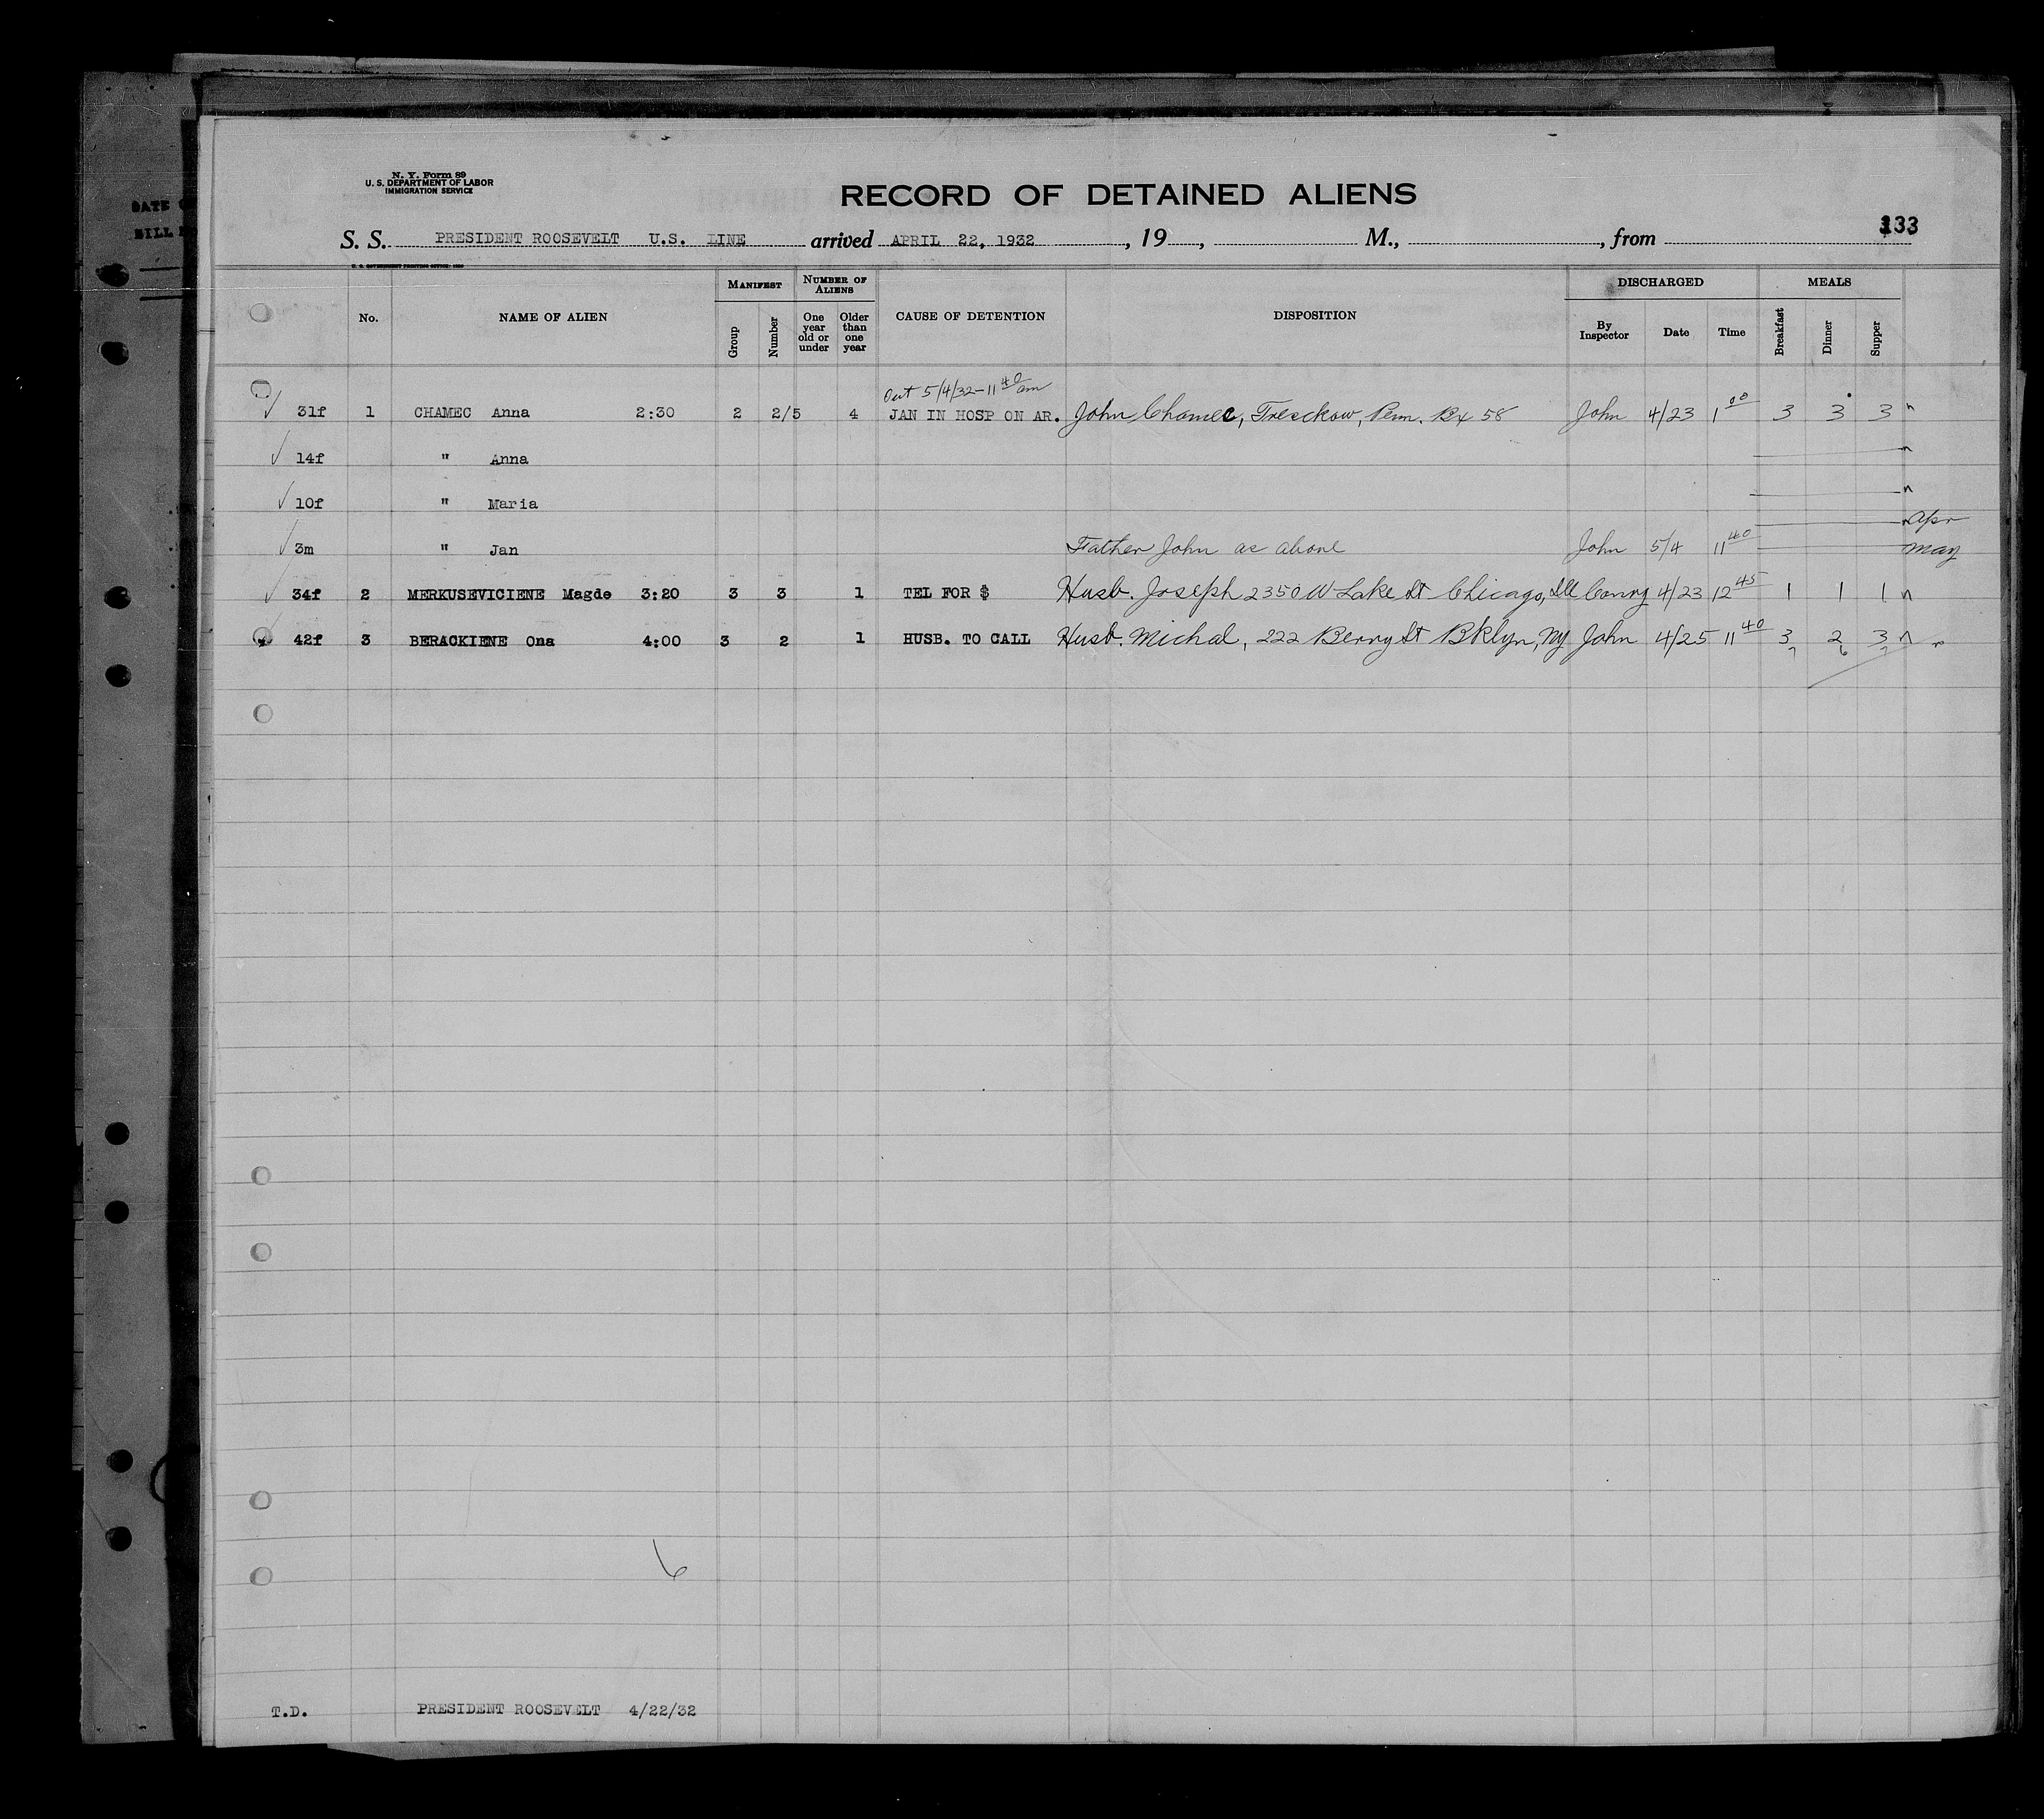 DATE
BILL
N. Y. Form 89
U. S. DEPARTMENT OF LABOR
IMMIGRATION SERVICE
RECORD OF DETAINED ALIENS
133
S. S. PRESIDENT ROOSEVELT U.S. LINE arrived APRIL 22, 1932, 19 , M., , from
No. NAME OF ALIEN MANIFEST Group Number NUMBER OF ALIENS One year old or under Older than one year CAUSE OF DETENTION DISPOSITION DISCHARGED By Inspector Date Time MEALS Breakfast Dinner Supper
Out 5/4/32-11 40 am
31f 1 CHAMEC Anna 2:30 2 2/5 4 JAN IN HOSP ON AR. John Chamec, Tresckow, Penn. Bx 58 John 4/23 1 00 3 3 3
14f " Anna
10f " Maria
Apr
3m " Jan Father John as above John 5/4 11 40 May
34f 2 MERKUSEVICIENE Magde 3:20 3 3 1 TEL FOR $ Husb. Joseph 2350 W Lake St Chicago, Ill Conry 4/23 12 45 1 1 1
42f 3 BERACKIENE Ona 4:00 3 2 1 HUSB. TO CALL Husb. Michal, 222 Berry St Bklyn, NY John 4/25 11 40 3 2 3
7 6 7
6
T.D. PRESIDENT ROOSEVELT 4/22/32